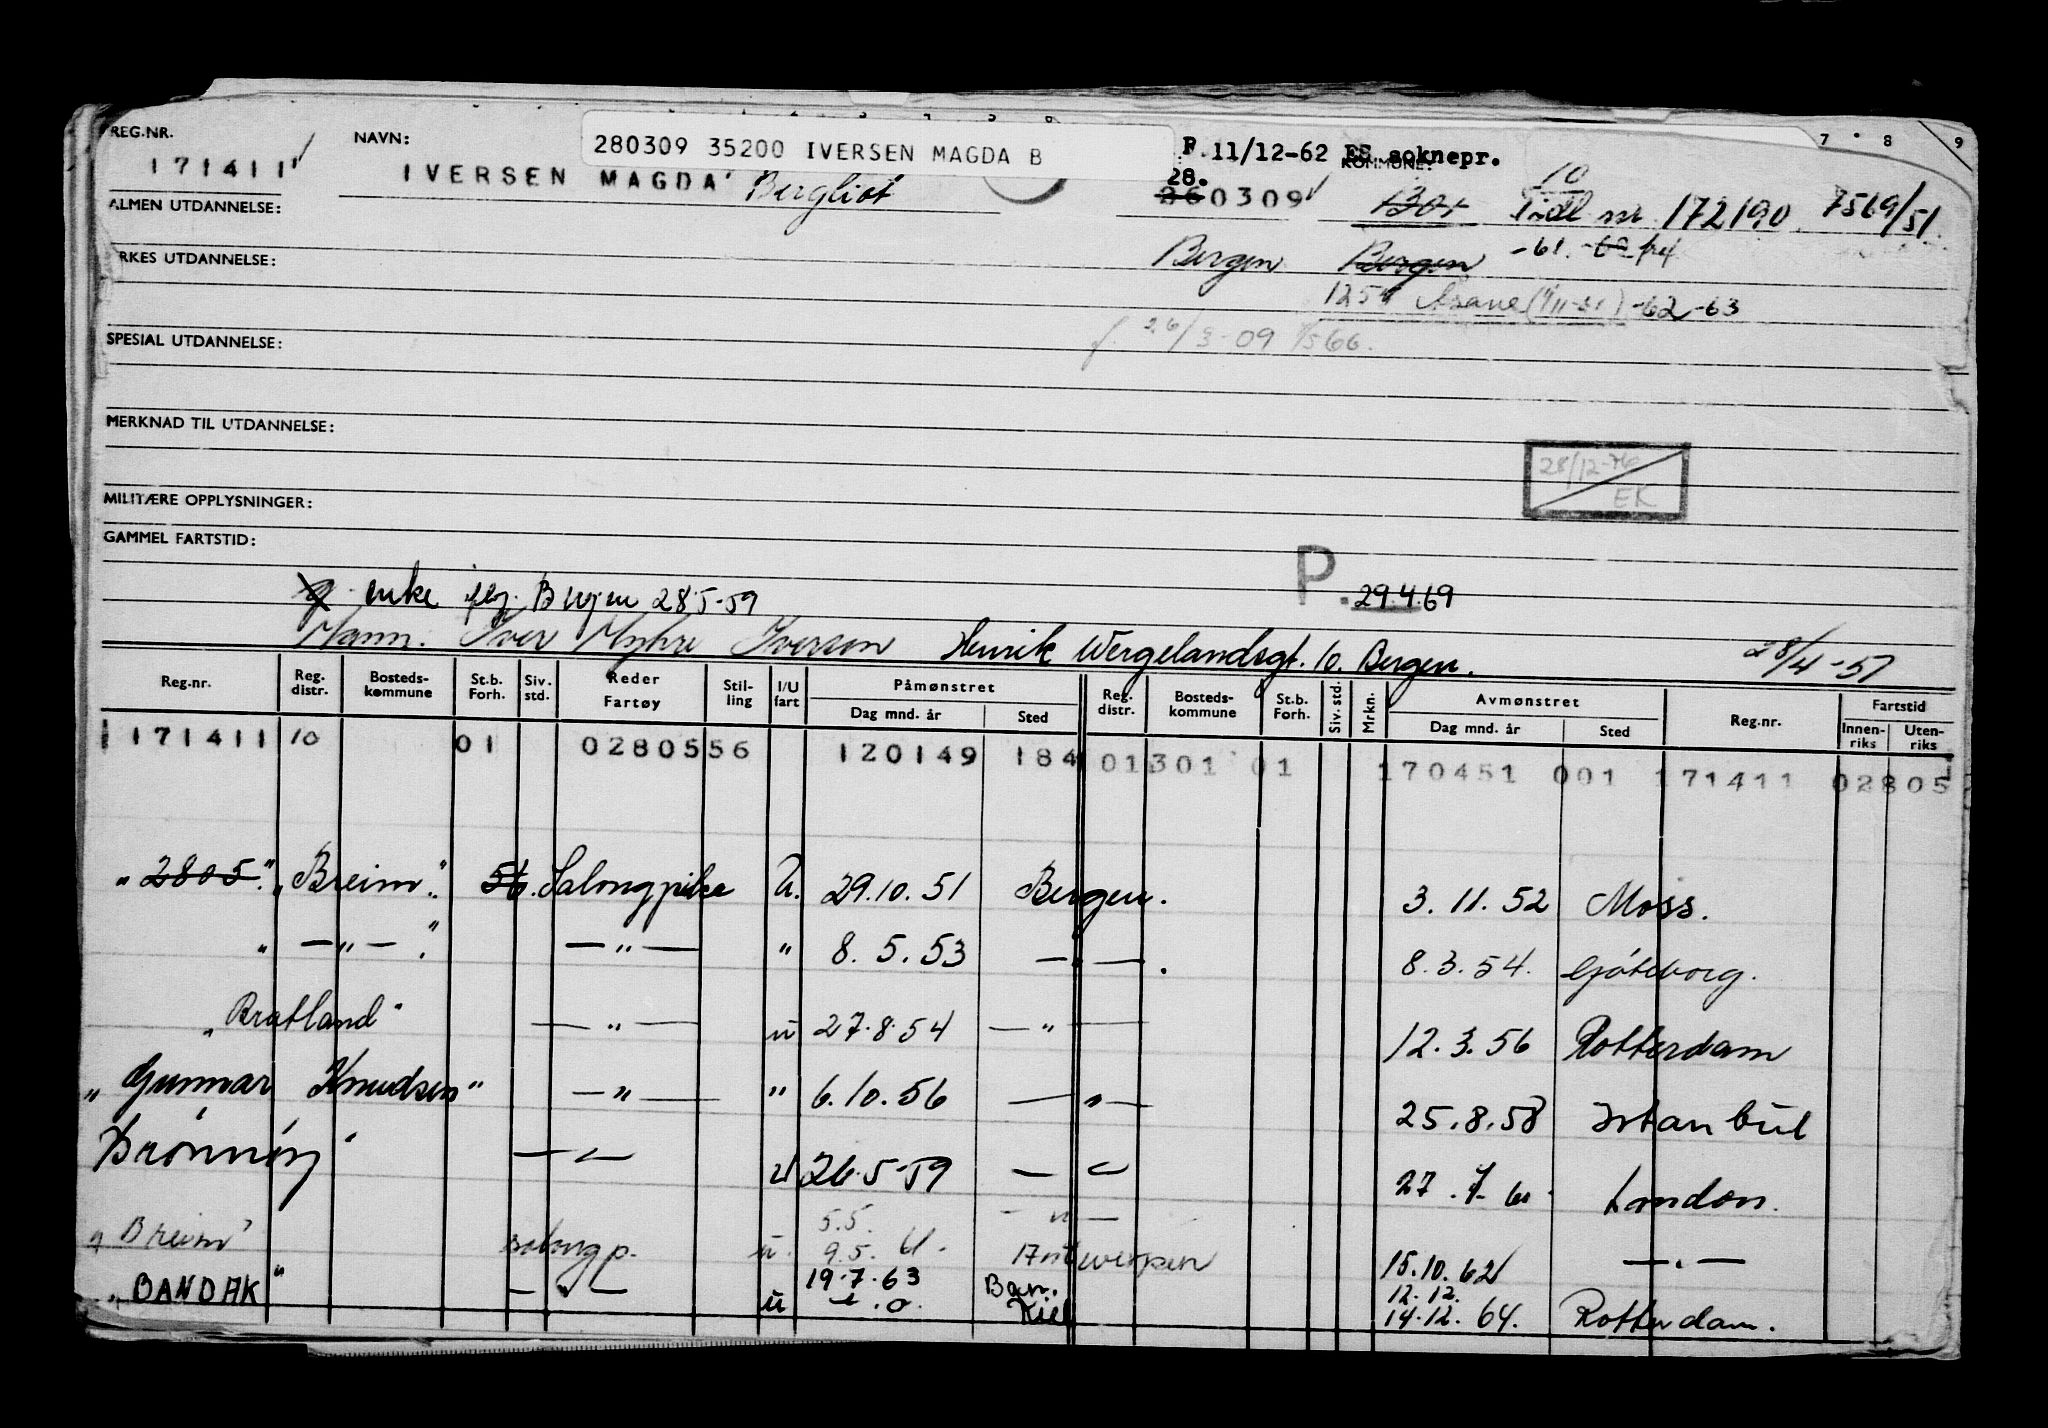 7 8 9
REG.NR.
NAVN:
280309 35200 IVERSEN MAGDA B
F. 11/12-62 ES soknepr.
KOMMUNE:
171411
IVERSEN MAGDA Bergliot
28.
260309
Bor
10
Tidl nr 172190 7569/51
ALMEN UTDANNELSE:
Bergen Bergen -61.
YRKES UTDANNELSE:
125 Åsane -62-63
SPESIAL UTDANNELSE:
f. 26/3-09 1/5 66.
MERKNAD TIL UTDANNELSE:
28/12-76
EK
MILITÆRE OPPLYSNINGER:
GAMMEL FARTSTID:
P. 29.4.69
enke Bergen 28.5-59
Mann. Iver Myhre Iversen Henrik Wergelandsgt. 10. Bergen. 28/4-51
Reg.nr. Reg. distr. Bosteds-kommune St.b. Forh. Siv. std. Reder Fartøy Stil-ling I/U fart Påmønstret Dag mnd. år Sted Reg. distr. Bosteds-kommune St.b. Forh. Siv. std. Mrkn. Avmønstret Dag mnd. år Sted Reg.nr. Fartstid Innen-riks Uten-riks
171411 10 01 0280556 120149 184 01301 01 170451 001 171411 02805
"2805". "Breim". 56. Salongpike U. 29.10.51 Bergen. 3.11.52 Moss.
" — " — ". — " — " 8.5.53 — " — . 8.3.54. Göteborg.
"Bratland" — " — u 27.8.54 — " — 12.3.56 Rotterdam
"Gunnar Knudsen" — " — " 6.10.56 — " — 25.8.58 Istanbul
Brønnøy — " — u 26.5-59 — " — 27. London.
"Breim" salongp. u. 5.5. 9.5. 61. — " — Antwerpen 15.10.62 — " —
"BANDAK" — " — u 19.7.63 Kiel 12.12. 14.12.64. Rotterdam.